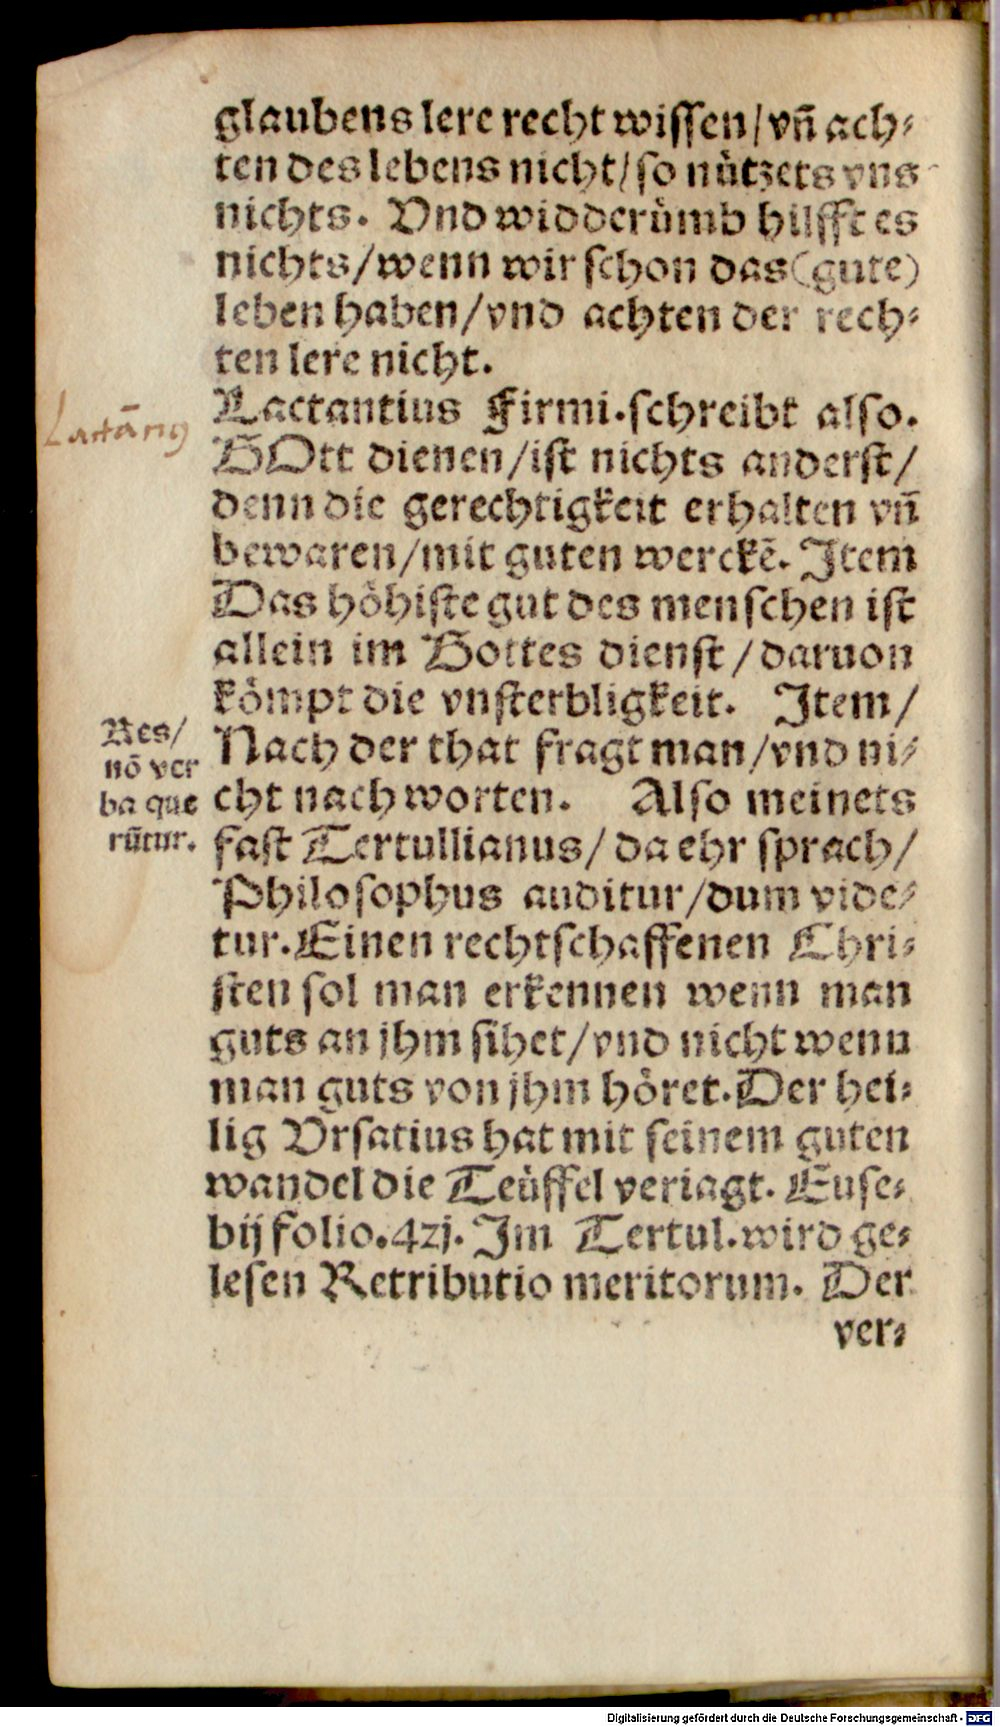 glaubens lere recht wissen/vñ ach⸗
ten des lebens nicht/so nützets vns
nichts. Vnd widderümb hilfft es
nichts/wenn wir schon das(gute)
leben haben/vnd achten der rech⸗
ten lere nicht.
Lactantius Firmi.schreibt also.
GOtt dienen/ist nichts anderst/
denn die gerechtigkeit erhalten vñ
bewaren/mit guten werckē. Item
Das höhiste gut des menschen ist
allein im Gottes dienst/daruon
kömpt die vnsterbligkeit. Item/
Nach der that fragt man/vnd ni⸗
cht nach worten. Also meinets
fast Tertullianus/da ehr sprach/
Philosophus auditur/dum vide⸗
tur.Einen rechtschaffenen Chri⸗
sten sol man erkennen wenn man
guts an jhm sihet/vnd nicht wenn
man guts von jhm höret.Der hei⸗
lig Vrsatius hat mit seinem guten
wandel die Teüffel veriagt. Euse⸗
bij folio.4zj. Im Tertul.wird ge⸗
lesen Retributio meritorum. Der
ver⸗
Lactāti9
Res/
nō ver
ba que
rūtur.
Digitalisierung gefördert durch die Deutsche Forschungsgemeinschaft - DFG